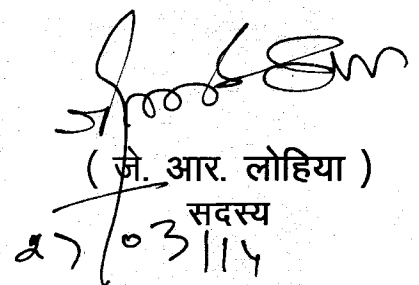 ( जे. आर. लोहिया )
सदस्य
27/03/14